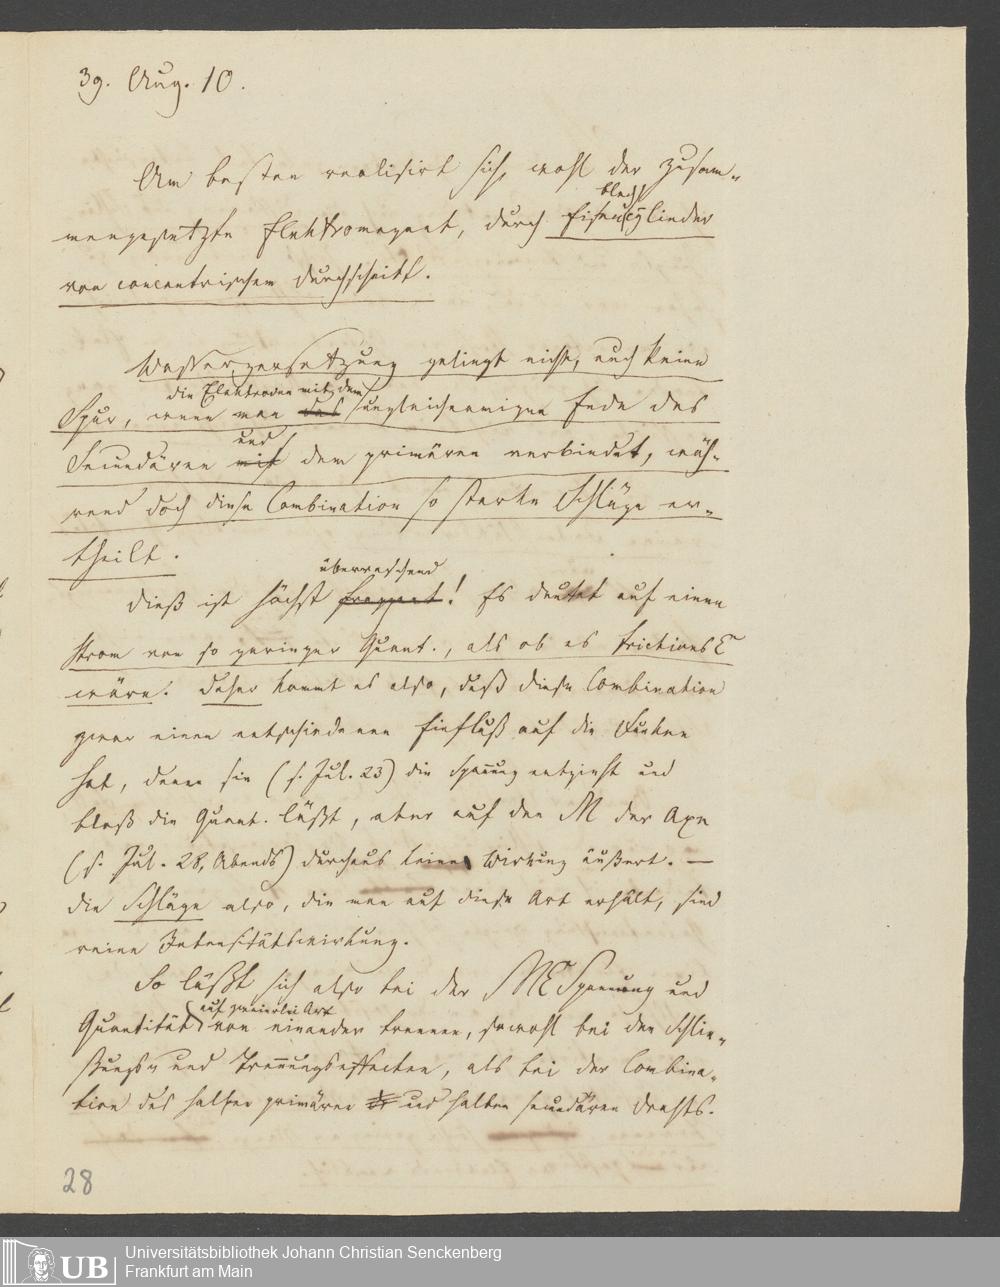 39. Aug. 10.
Am besten realisirt sich, wohl der zusam-
mengesetzte Elektromagnet, durch Eisenblechcylinder
von concentrischem Durchschnitt.
Wasserzersetzung gelingt nicht, auch keine
Spur, wenn man die Elektroden mit dem ungleichnamigen Ende des
Secundären und dem primären verbindet, wäh-
rend doch diese Combination so starke Schläge er-
theilt.
Dieß ist höchst überraschend frappant! Es deutet auf einen
Strom von so geringer Quant., als ob es Frictions E
wäre. Daher kommt es also, daß diese Combination
zwar einen entschiedenen Einfluß auf die Funken
hat, denen sie (s. Jul. 23) die Spannung entzieht und
bloß die Quant. läßt, aber auf den M der Axe
(s. Jul. 28, Abends) durchaus keine Wirkung äußert. —
die Schläge also, die man auf diese Art erhält, sind
reine Intensitätswirkung.
So läßt sich also bei der ME Spannung und
Quantität auf zweierlei Art von einander trennen, sowohl bei den Schlie-
ßungs- und Trennungseffecten, als bei der Combina-
tion des halben primären und halben secundären Drahts.
28
UB
Universitätsbibliothek Johann Christian Senckenberg
Frankfurt am Main